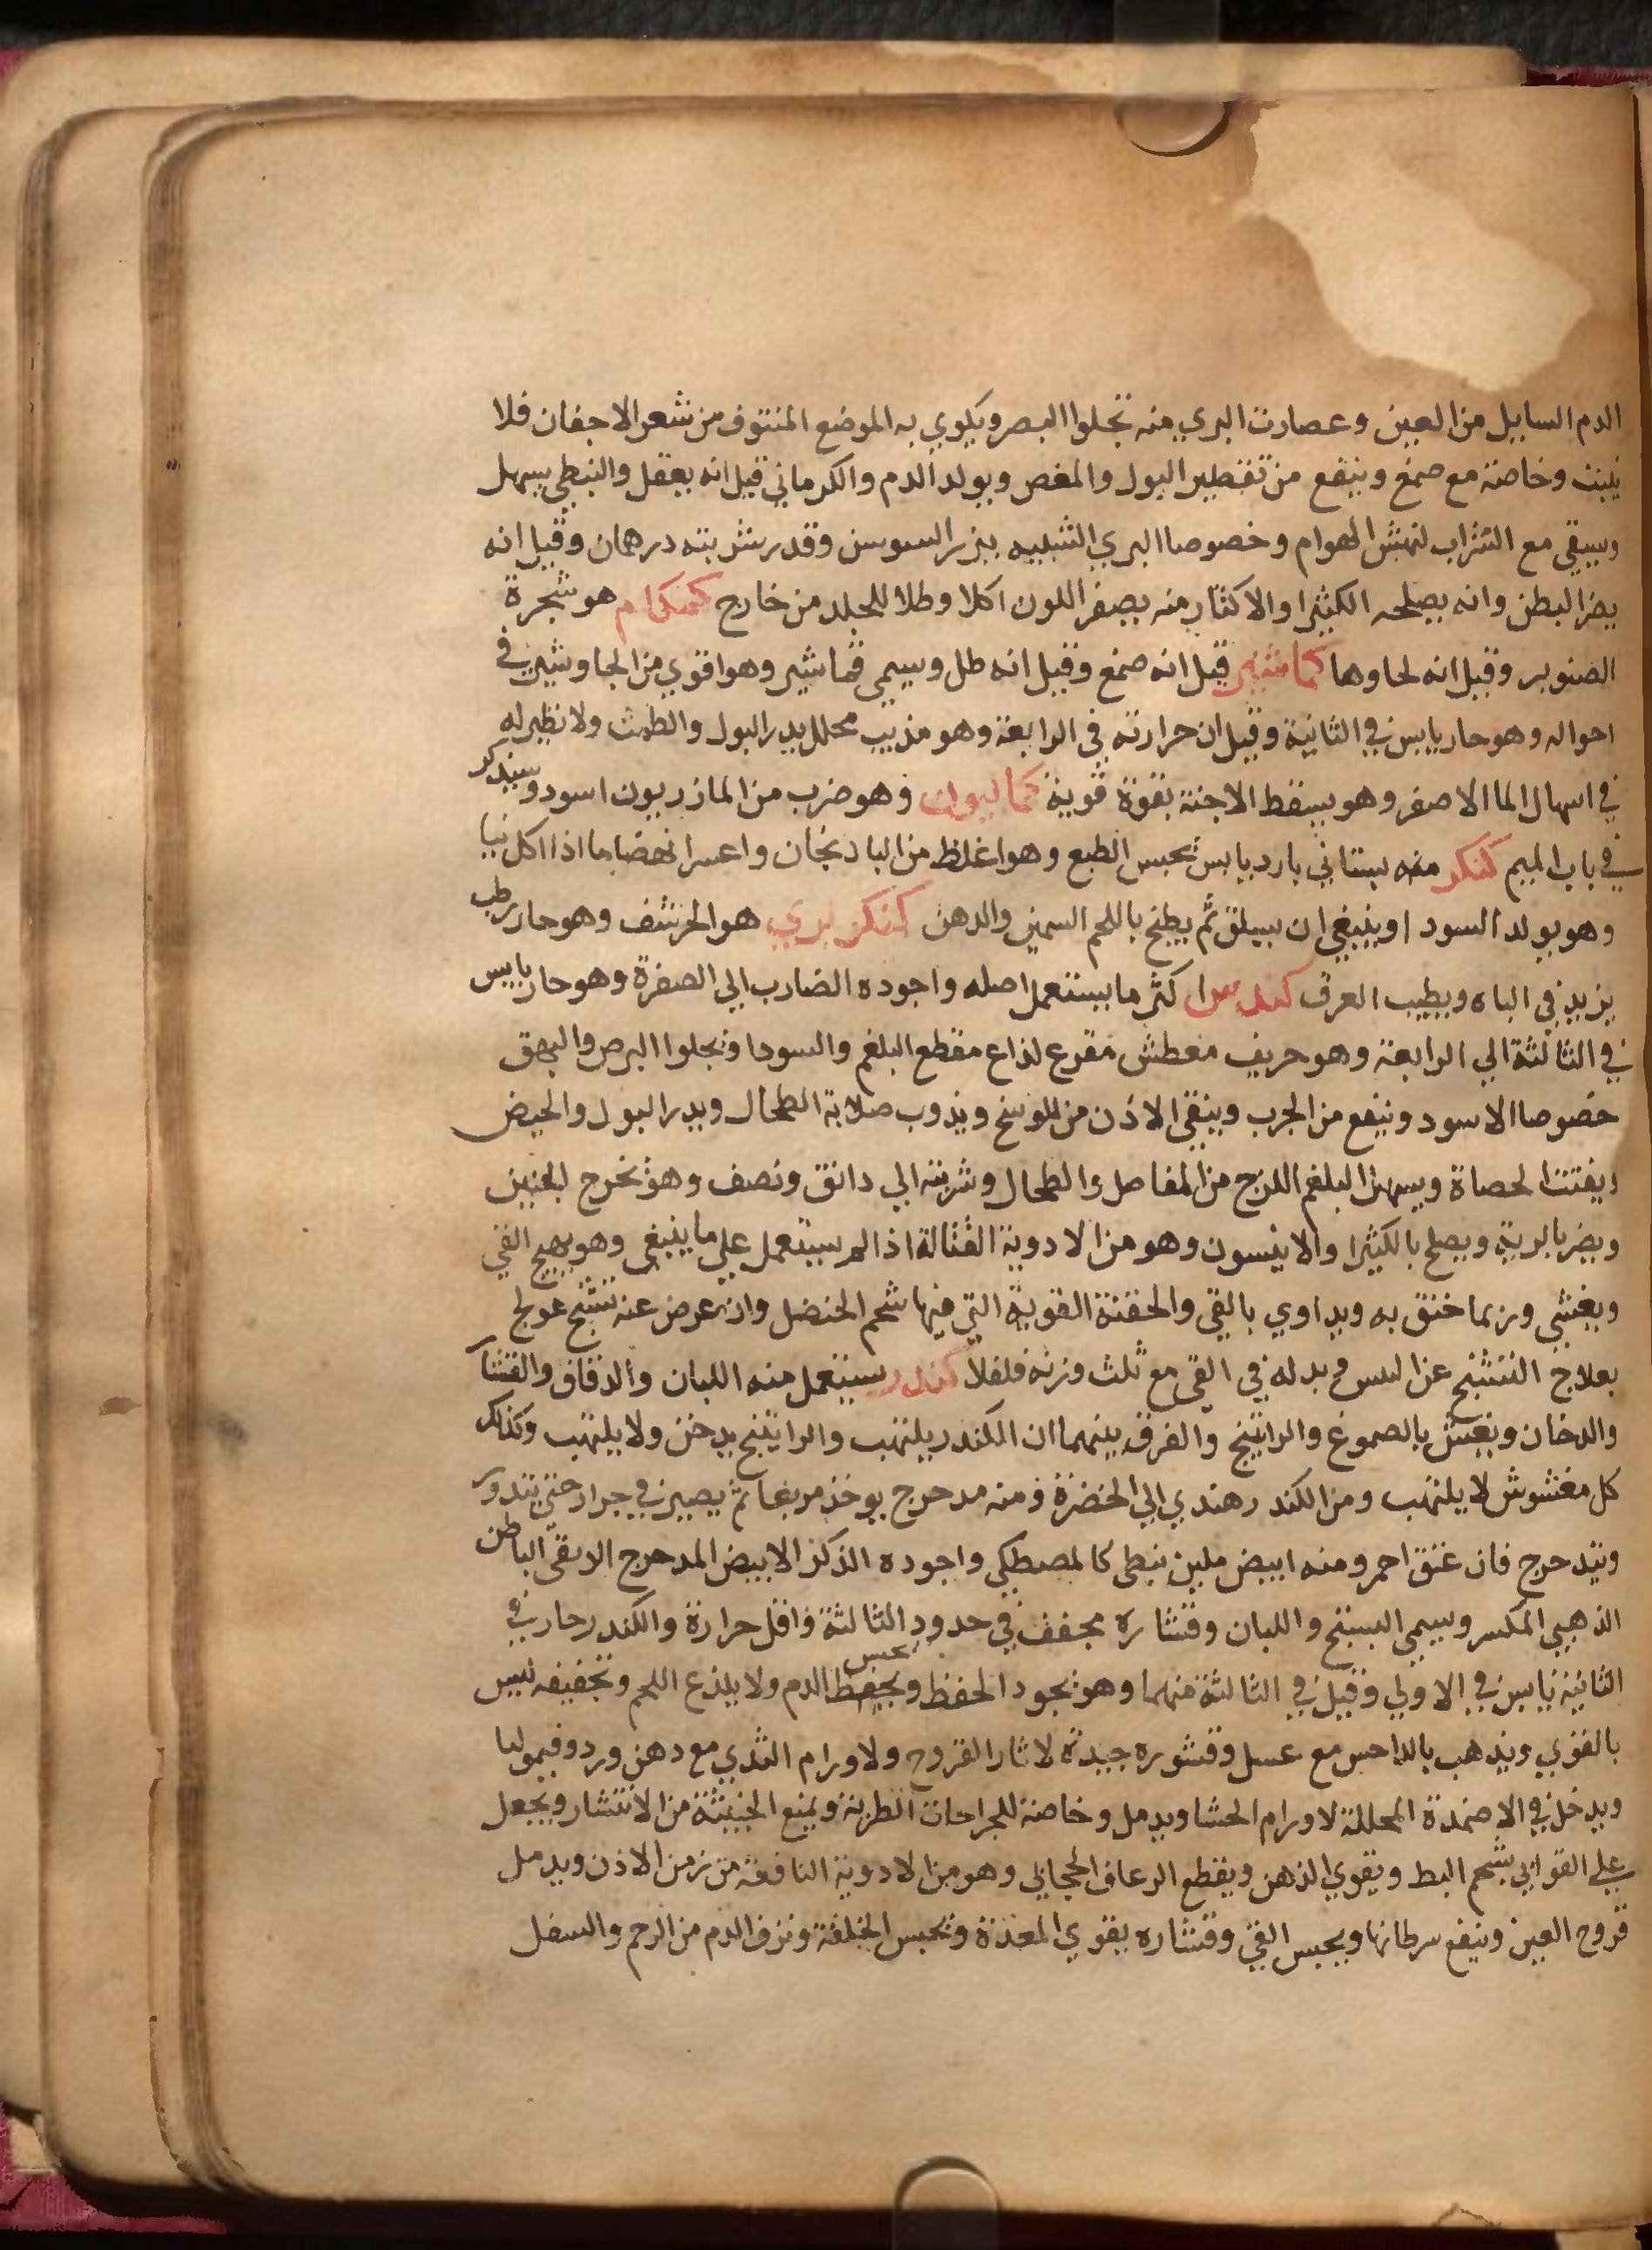 الدم السايل من العين وعصارت البري منه تجلوا البصر ويكوي به الموضع المنتوف من شعر الاجفان فلا
ينبت وخاصة مع صمغ وينفع من تقطير البول والمغص ويولد الدم والكرماني قيل انه يعقل والنبطي يسهل
ويسقي مع الشراب لنهش الهوام وخصوصا البري الشبيه ببزر السوسن وقدر شربته درهمان وقيل انه
يضر البطن وانه يصلحه الكثيرا والاكثار منه يصفر اللون اكلا وطلا للجلد من خارج كمنكام هو شجرة
الصنوبر وقيل انه لحاوها كماشير قيل انه صمغ وقيل انه طل ويسمي قماشير وهو اقوي من الجاوشير في
احواله وهو حار يابس في الثانية وقيل ان حرارته في الرابعة وهو مذيب محلل يدر البول والطمث ولا نظير له
في اسهال الما الاصفر وهو يسقط الاجنة بقوة قوية كماليون وهو ضرب من المازريون اسود وسيذكر
في باب الميم كنكر منه بستاني بارد يابس يحبس الطبع وهو اغلظ من الباذنجان واعسر انهضاما اذا اكل نيا
وهو يولد السودا وينبغي ان يسلق ثم يطبخ باللحم السمين والدهن كنكر بري هو الحرشف وهو حار رطب
يزيد في الباه ويطيب العرق كندس اكثر ما يستعمل اصله واجوده الضارب الي الصفرة وهو حار يابس
في الثالثة الي الرابعة وهو حريف معطش مقرع لذاع مقطع البلغم والسودا وتجلوا البرص والبهق
خصوصا الاسود وينفع من الجرب وينقي الاذن من الوسخ ويذوب صلابة الطحال ويدر البول والحيض
ويفتت الحصاة ويسهل البلغم اللزج من المفاصل والطحال وشربته الي دانق ونصف وهو يخرج الجنين
ويضر بالرية ويصلح بالكثيرا والانيسون وهو من الادوية القتالة اذا لم يستعمل علي ما ينبغي وهو يهيج القي
ويغشي وربما خنق به ويداوي بالقي والحقنة القوية التي فيها شحم الحنضل وان عرض عنه تشنج عولج
بعلاج التشنج عن اليبس وبدله في القي مع ثلث وزنه فلفلا كندر يستعمل منه اللبان والدقاق والقشار
والدخان ويغش بالصموغ والراتينج والفرق بينهما ان الكندر يلتهب والراتينج يدخن ولا يلتهب وكذلك
كل مغشوش لا يلتهب ومن الكندر هندي الي الخضرة ومنه مدحرج يوخذ مربعا ثم يصير في جرار حتي يتدور
ويتدحرج فان عتق احمر ومنه ابيض ملين ينطى كالمصطكي واجوده الذكر الابيض المدحرج الدبقي الباطن
الذهبي المكسر ويسمي البستج واللبان وقشاره مجفف في حدود الثالثة واقل حرارة والكندر حار في
الثانية يابس في الاولي وقيل في الثالثة منهما وهو يجود الحفظ ويحفظ يحبس الدم ولا يلذع اللحم وتجفيفه ليس
بالقوي ويذهب بالداحس مع عسل وقشوره جيدة لاثار القروح ولاورام الثدي مع دهن ورد وقيموليا
ويدخل في الاضمدة المحللة لاورام الحشا ويدمل وخاصة للجراحات الطرية ويمنع الخبيثة من الانتشار ويجعل
علي القوابي بشحم البط ويقوي الذهن ويقطع الرعاف الحجابي وهو من الادوية النافعة من زمن الاذن ويدمل
قروح العين وينفع سرطانها ويحبس القي وقشاره يقوي المعدة ويحبس الخلفة ونزف الدم من الرحم والسفل